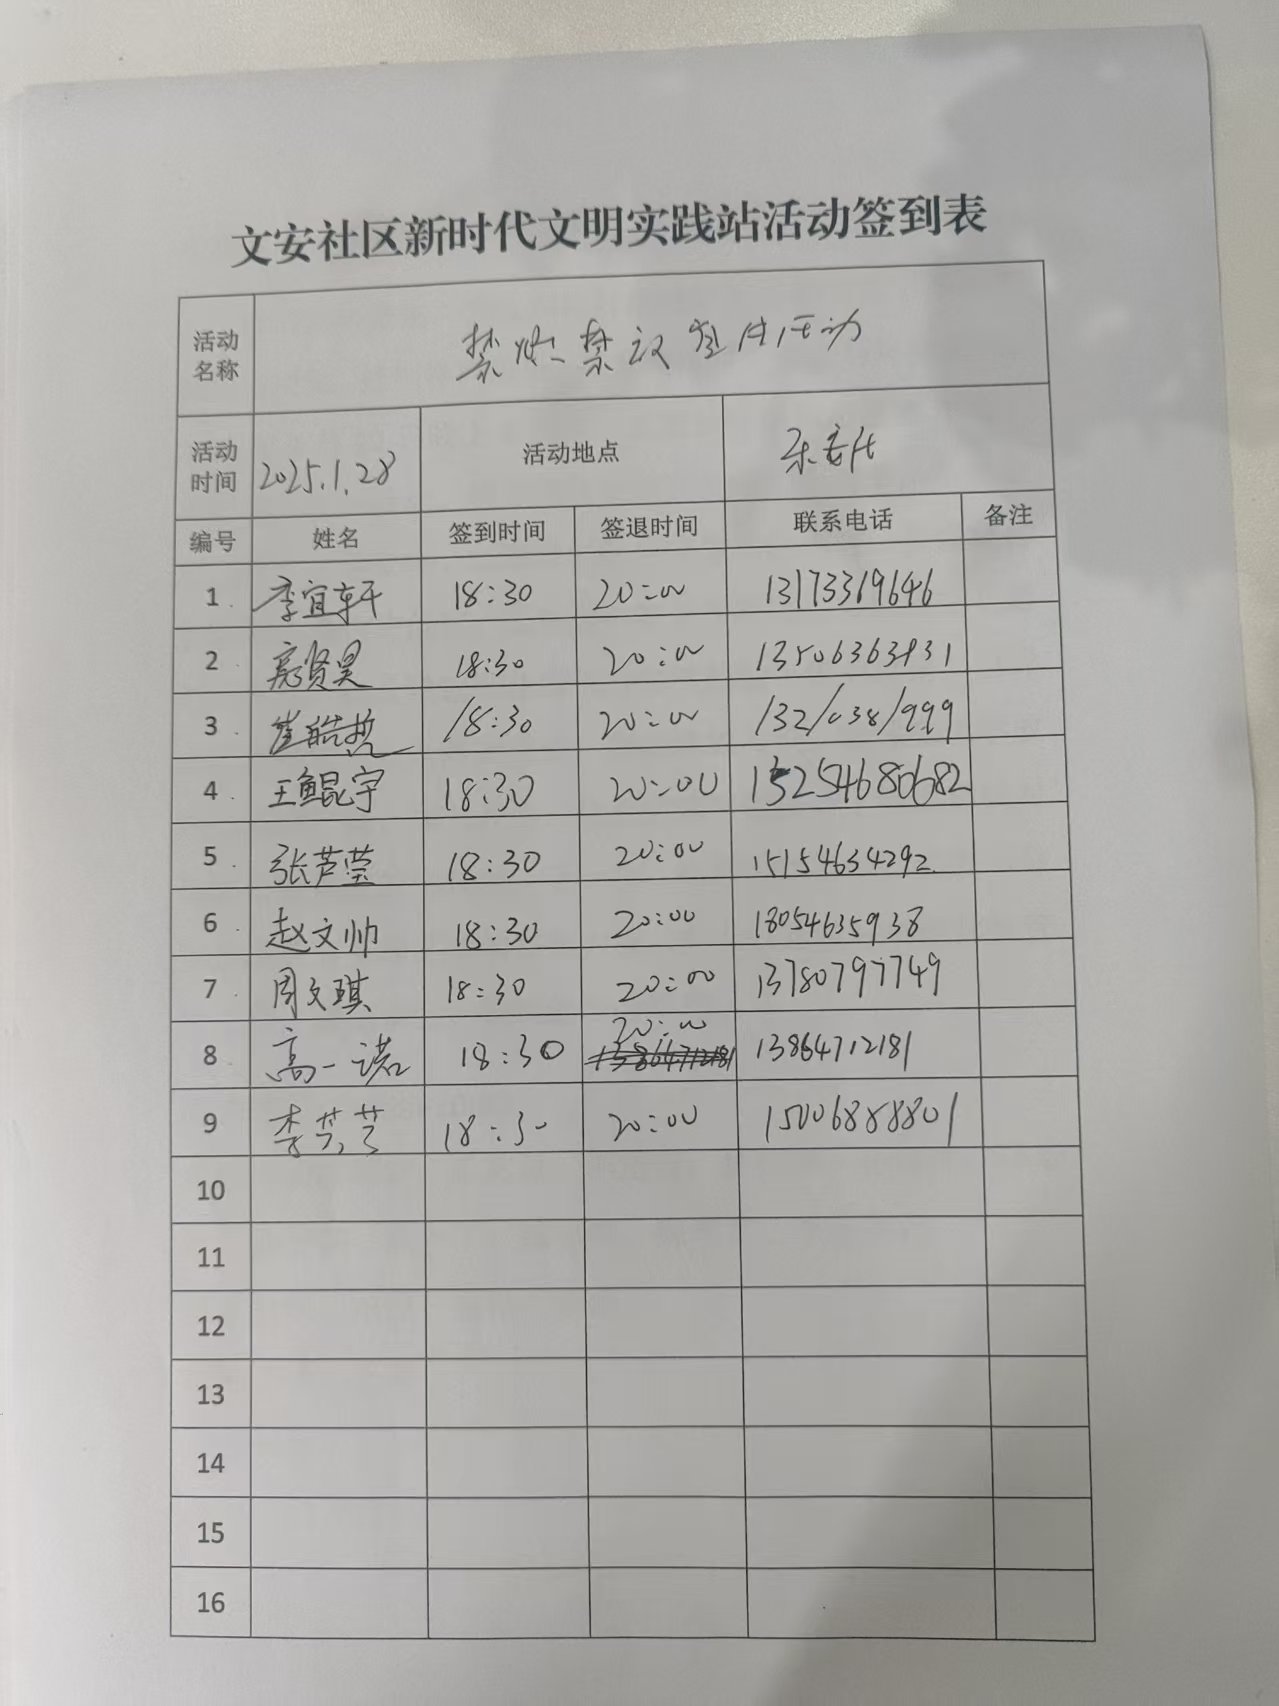 文安社区新时代文明实践站活动签到表
活动名称 禁燃禁放宣传活动
活动时间 2025.1.28 活动地点
编号 姓名 签到时间 签退时间 联系电话 备注
1 李宜轩 18:30 20:00 13173319646
2 贤昊 18:30 20:00
3 崔皓哲 18:30 20:00 13210381999
4 王鲲宇 18:30 20:00 15254680682
5 张芦莹 18:30 20:00 15154634292
6 赵文帅 18:30 20:00 18054635938
7 周文琪 18:30 20:00 13780797749
8 高一诺 18:30 20:00 13864712181
9 李芸芝 18:30 20:00 15006888801
10
11
12
13
14
15
16